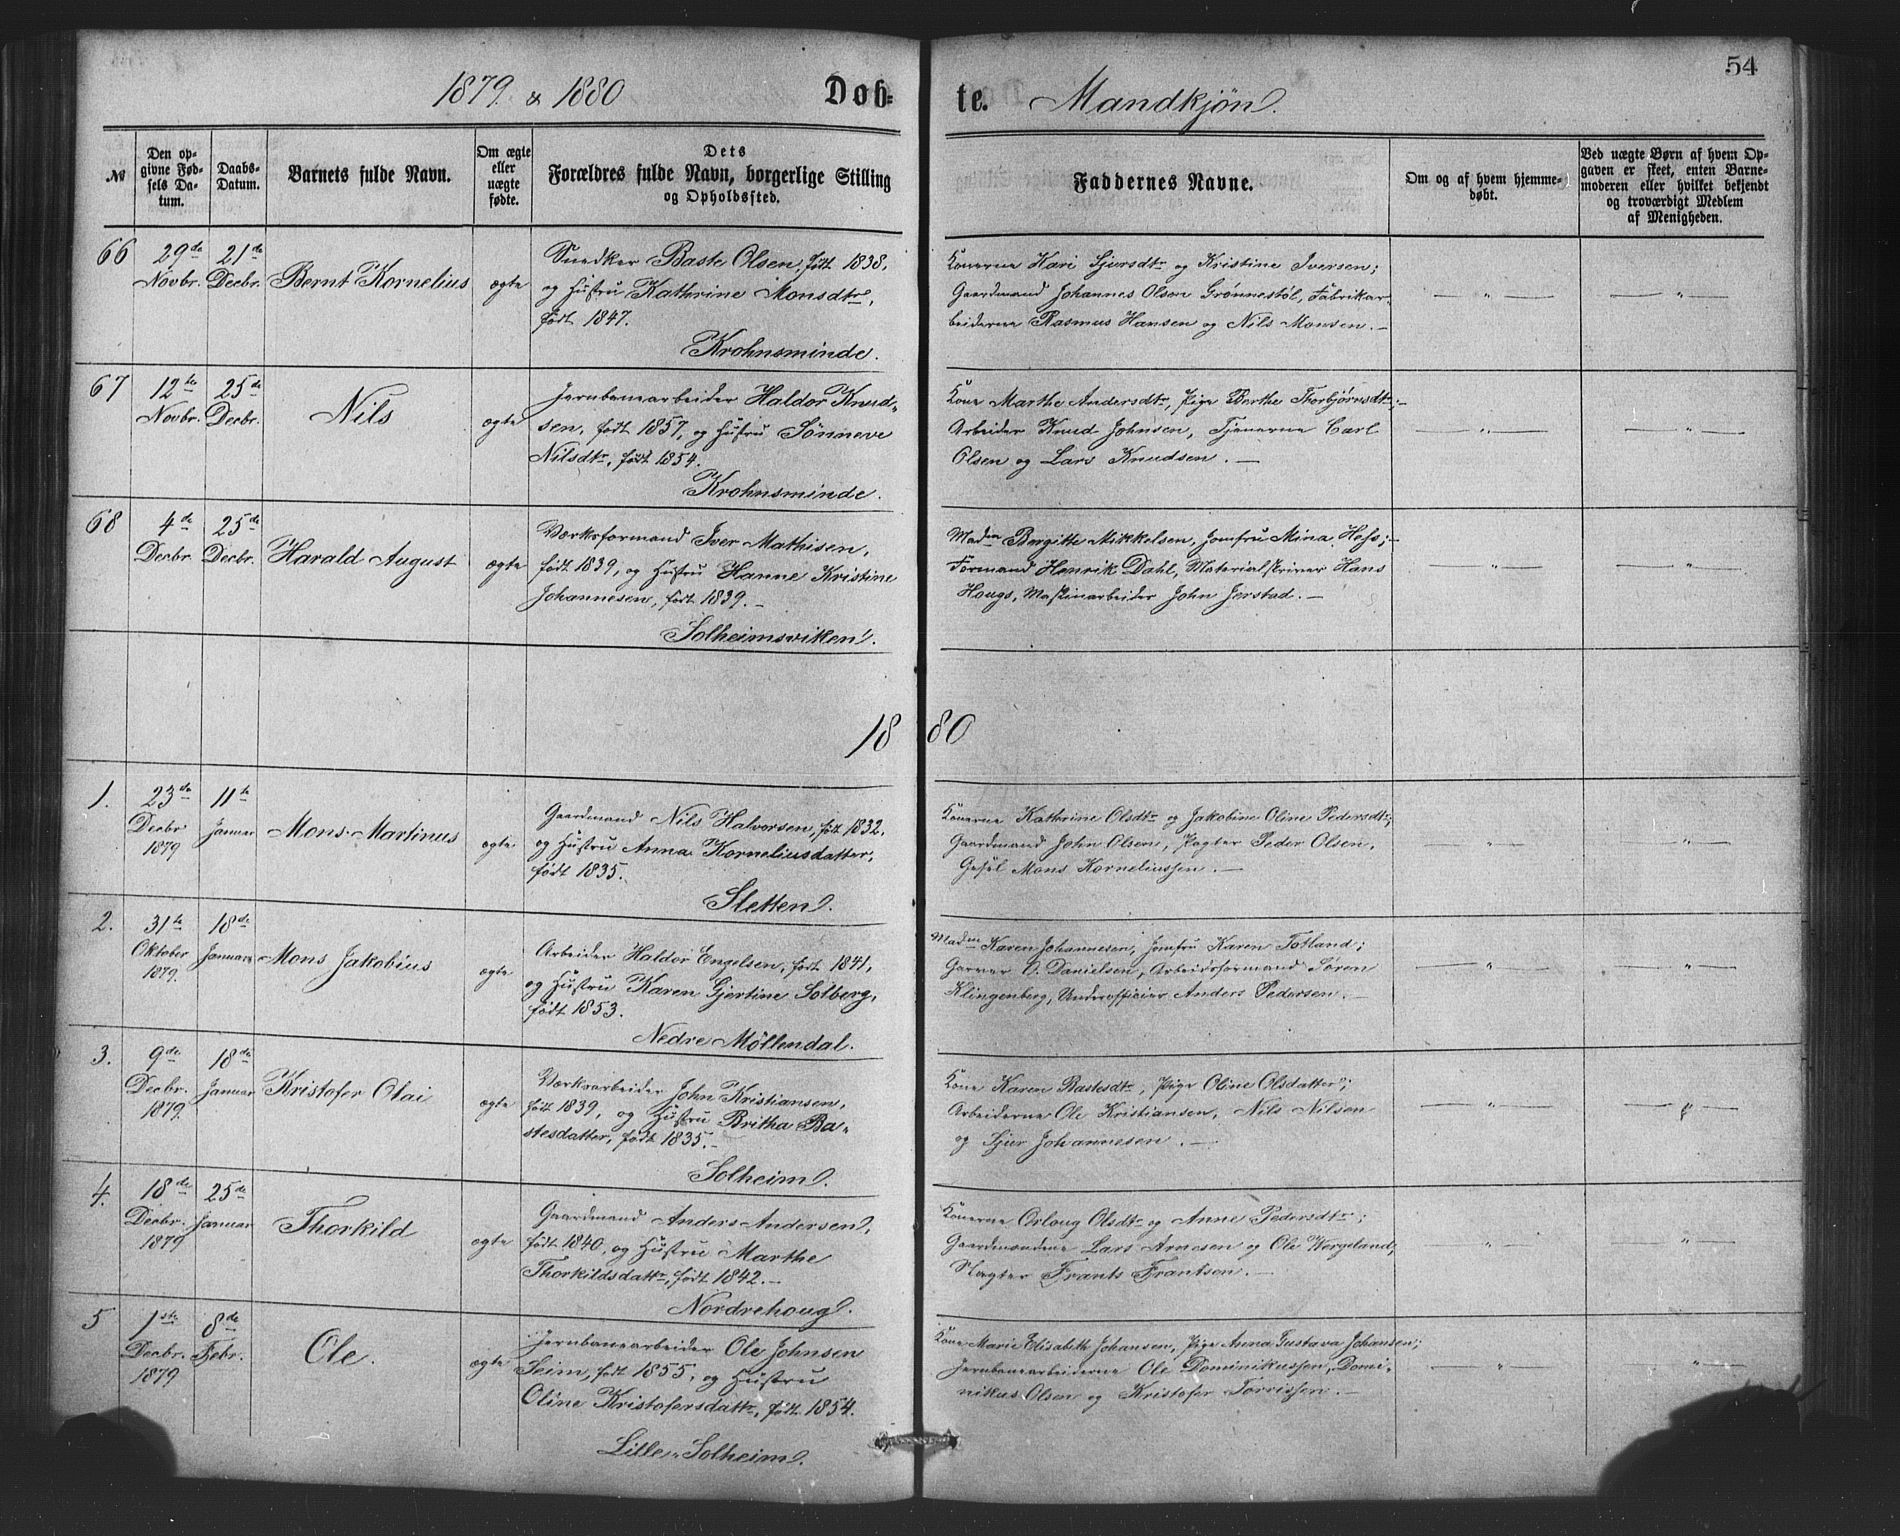 54
1879 & 1880 Døb-te. Mandkjøn.
№
Den opgivne Fødsels Datum.
Daabs-Datum.
Barnets fulde Navn.
Om ægte eller uægte fødte.
Dets Forældres fulde Navn, borgerlige Stilling og Opholdssted.
Faddernes Navne.
Om og af hvem hjemmedøbt.
Ved uægte Børn af hvem Opgaven er skeet, enten Barnemoderen eller hvilket bekjendt og troværdigt Medlem af Menigheden.
66
29de Novbr.
21de Decbr.
Bernt Kornelius
ægte
Snedker Baste Olsen, født 1838,
og Hustru Kathrine Monsdtr,
født 1847.
Krohnsminde.
Konerne Kari Sjursdtr og Kristine Iversen;
Gaardmand Johannes Olsen Grønnestøl, Fabrikar-
beiderne Rasmus Hansen og Nils Monsen. —
— " —
— " —
67
12te Novbr.
25de Decbr.
Nils
ægte
Jernbanearbeider Haldor Knud-
sen, født 1857, og Hustru Sønneve
Nilsdtr, født 1854.
Krohnsminde.
Kone Marthe Andersdtr, Pige Berthe Thorbjørnsdtr; —
Arbeider Knud Johnsen, Tjenerne Carl
Olsen og Lars Knudsen. —
— " —
— " —
68
4de Decbr.
25de Decbr.
Harald August
ægte
Værksformand Iver Mathisen,
født 1839, og Hustru Hanne Kristine
Johannesen, født 1839. —
Solheimsviken.
Madm Bergitte Mikkelsen, Jomfru Mina Hess; —
Formand Henrik Dahl, Materialskriver Hans
Hougs, Maskinarbeider John Jerstad. —
— " —
— " —
1880
1.
23de Decbr 1879
11te Januar
Mons Martinus
ægte
Gaardmand Nils Halvorsen, født 1832,
og Hustru Anna Korneliusdatter,
født 1835.
Sletten.
Konerne Kathrine Olsdtr og Jakobine Oline Pedersdtr;
Gaardmand John Olsen, Pagter Peder Olsen,
Gesel Mons Korneliussen. —
— " —
— " —
2.
31te Oktober 1879.
18de Januar
Mons Jakobius
ægte
Arbeider Haldor Engelsen, født 1841,
og Hustru Karen Gjertine Solberg,
født 1853.
Nedre Møllendal.
Madm Karen Johannesen, Jomfru Karen Totland;
Garver O. Danielsen, Arbeidsformand Søren
Klingenberg, Underofficier Anders Pedersen. —
— " —
— " —
3.
9de Decbr. 1879.
18de Januar
Kristofer Olai
ægte
Værksarbeider John Kristiansen,
født 1839, og Hustru Britha Ba-
stesdatter, født 1835. —
Solheim.
Kone Karen Bastesdtr, Pige Oline Olsdatter;
Arbeiderne Ole Kristiansen, Nils Nilsen
og Sjur Johannesen. —
— " —
— " —
4.
18de Decbr. 1879
25de Januar
Thorkild
ægte
Gaardmand Anders Andersen,
født 1840, og Hustru Marthe
Thorkildsdattr, født 1842. —
Nordrehoug.
Konerne Orloug Olsdtr og Anne Pedersdtr;
Gaardmændene Lars Arnesen og Ole Wergeland,
Slagter Frants Frantsen. —
— " —
— " —
5
1ste Decbr. 1879
8de Febr.
Ole.
ægte
Jernbanearbeider Ole Johnsen
Seim, født 1855, og Hustru
Oline Kristofersdattr, født 1854.
Lille-Solheim.
Kone Marie Elisabeth Johansen, Pige Anna Gustava Johansen;
Jernbanearbeiderne Ole Dominikussen, Domi-
nikus Olsen og Kristofer Torvissen. —
— " —
— " —